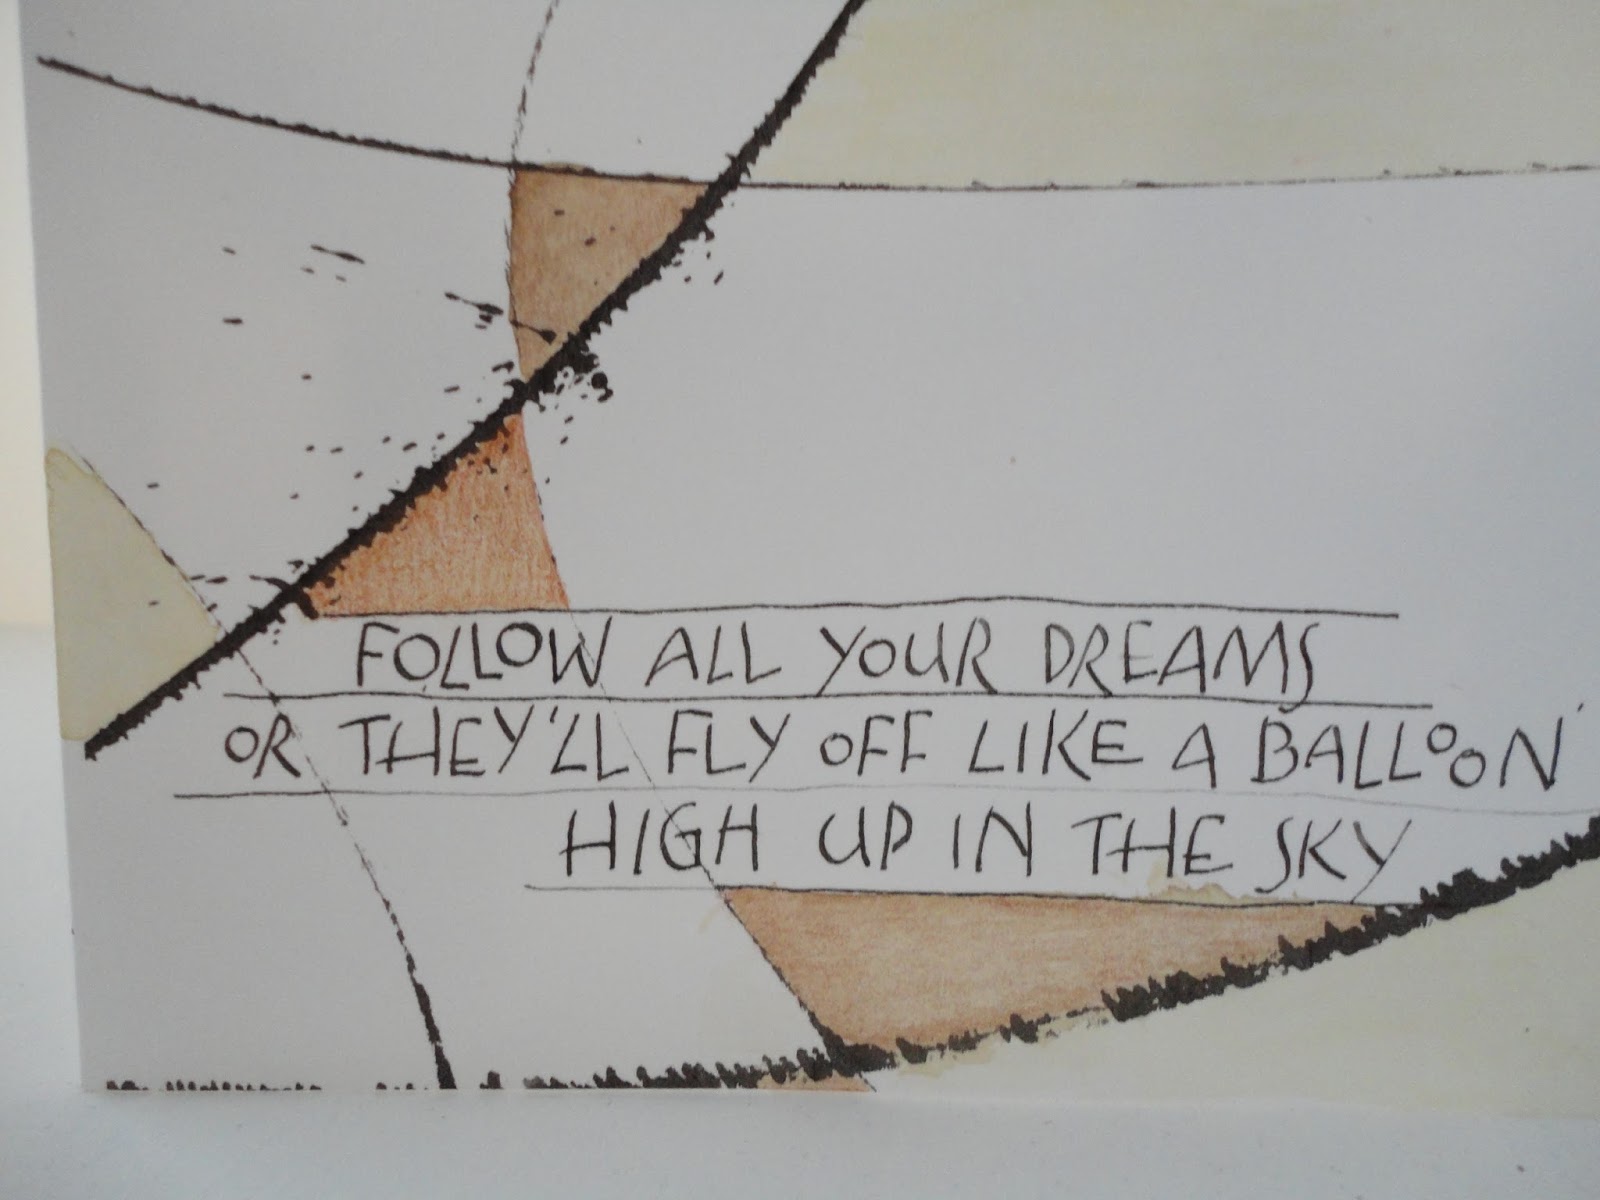 FOLLOW ALL YOUR DREAMS
OR THEY'LL FLY OFF LIKE A BALLOON
HIGH UP IN THE SKY